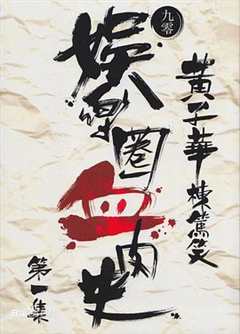 九零
娛樂圈血肉史
黃子華棟篤笑
第一集